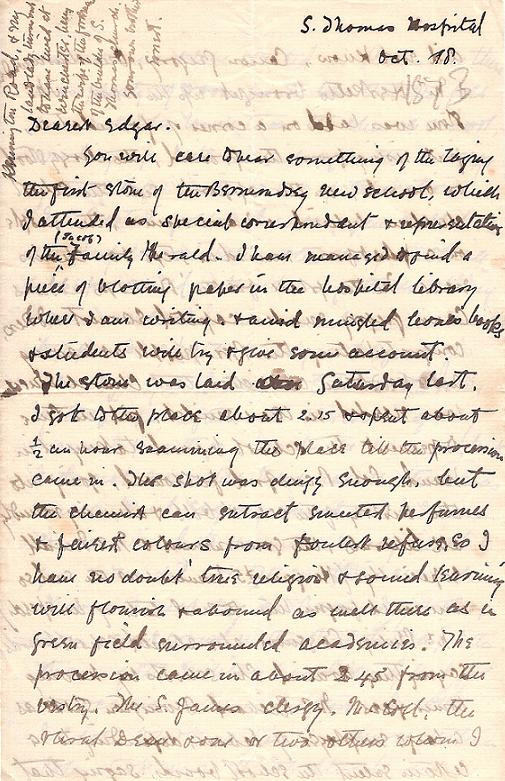 S. Thomas Hospital
Oct. 18.
Dearest Edgar.
You will care to hear something of the laying
the first stone of the Bermondsey new school, which
I attended as special correspondent & representative
(Jacob)
of the Family Herald. I have managed to find a
piece of blotting paper in the hospital library
where I am writing, & amid mingled bones books
& students will try & give some account.
The stone was laid on Saturday last.
I got to the place about 2.15 & spent about
½ an hour examining the place till the procession
came in. The spot was dingy enough, but
the chemist can extract sweetest perfumes
& purest colours from foulest refuse, so I
have no doubt true religion & sound learning
will flourish & abound as well there as in
green field surrounded academies. The
procession came in about 2.45 from the
vestry. The S. James clergy. the
Rural Dean & one or two others whom I
Kennington Road, every
landlady
lived at
Winchester
the
of the
S. Thomas's church.
brother